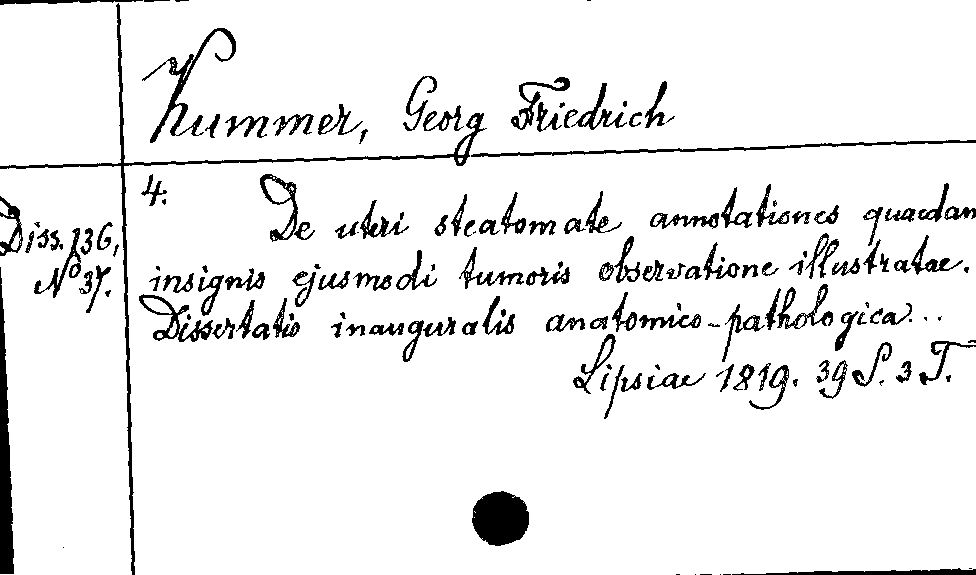 Kummer, Georg Friedrich
Diss. 136,
No 37.
4.
De uteri steatomate annotationes quaedam
insignis ejusmodi tumoris observatione illustratae.
Dissertatio inauguralis anatomico-pathologica...
Lipsiae 1819. 39 S. 3 T.